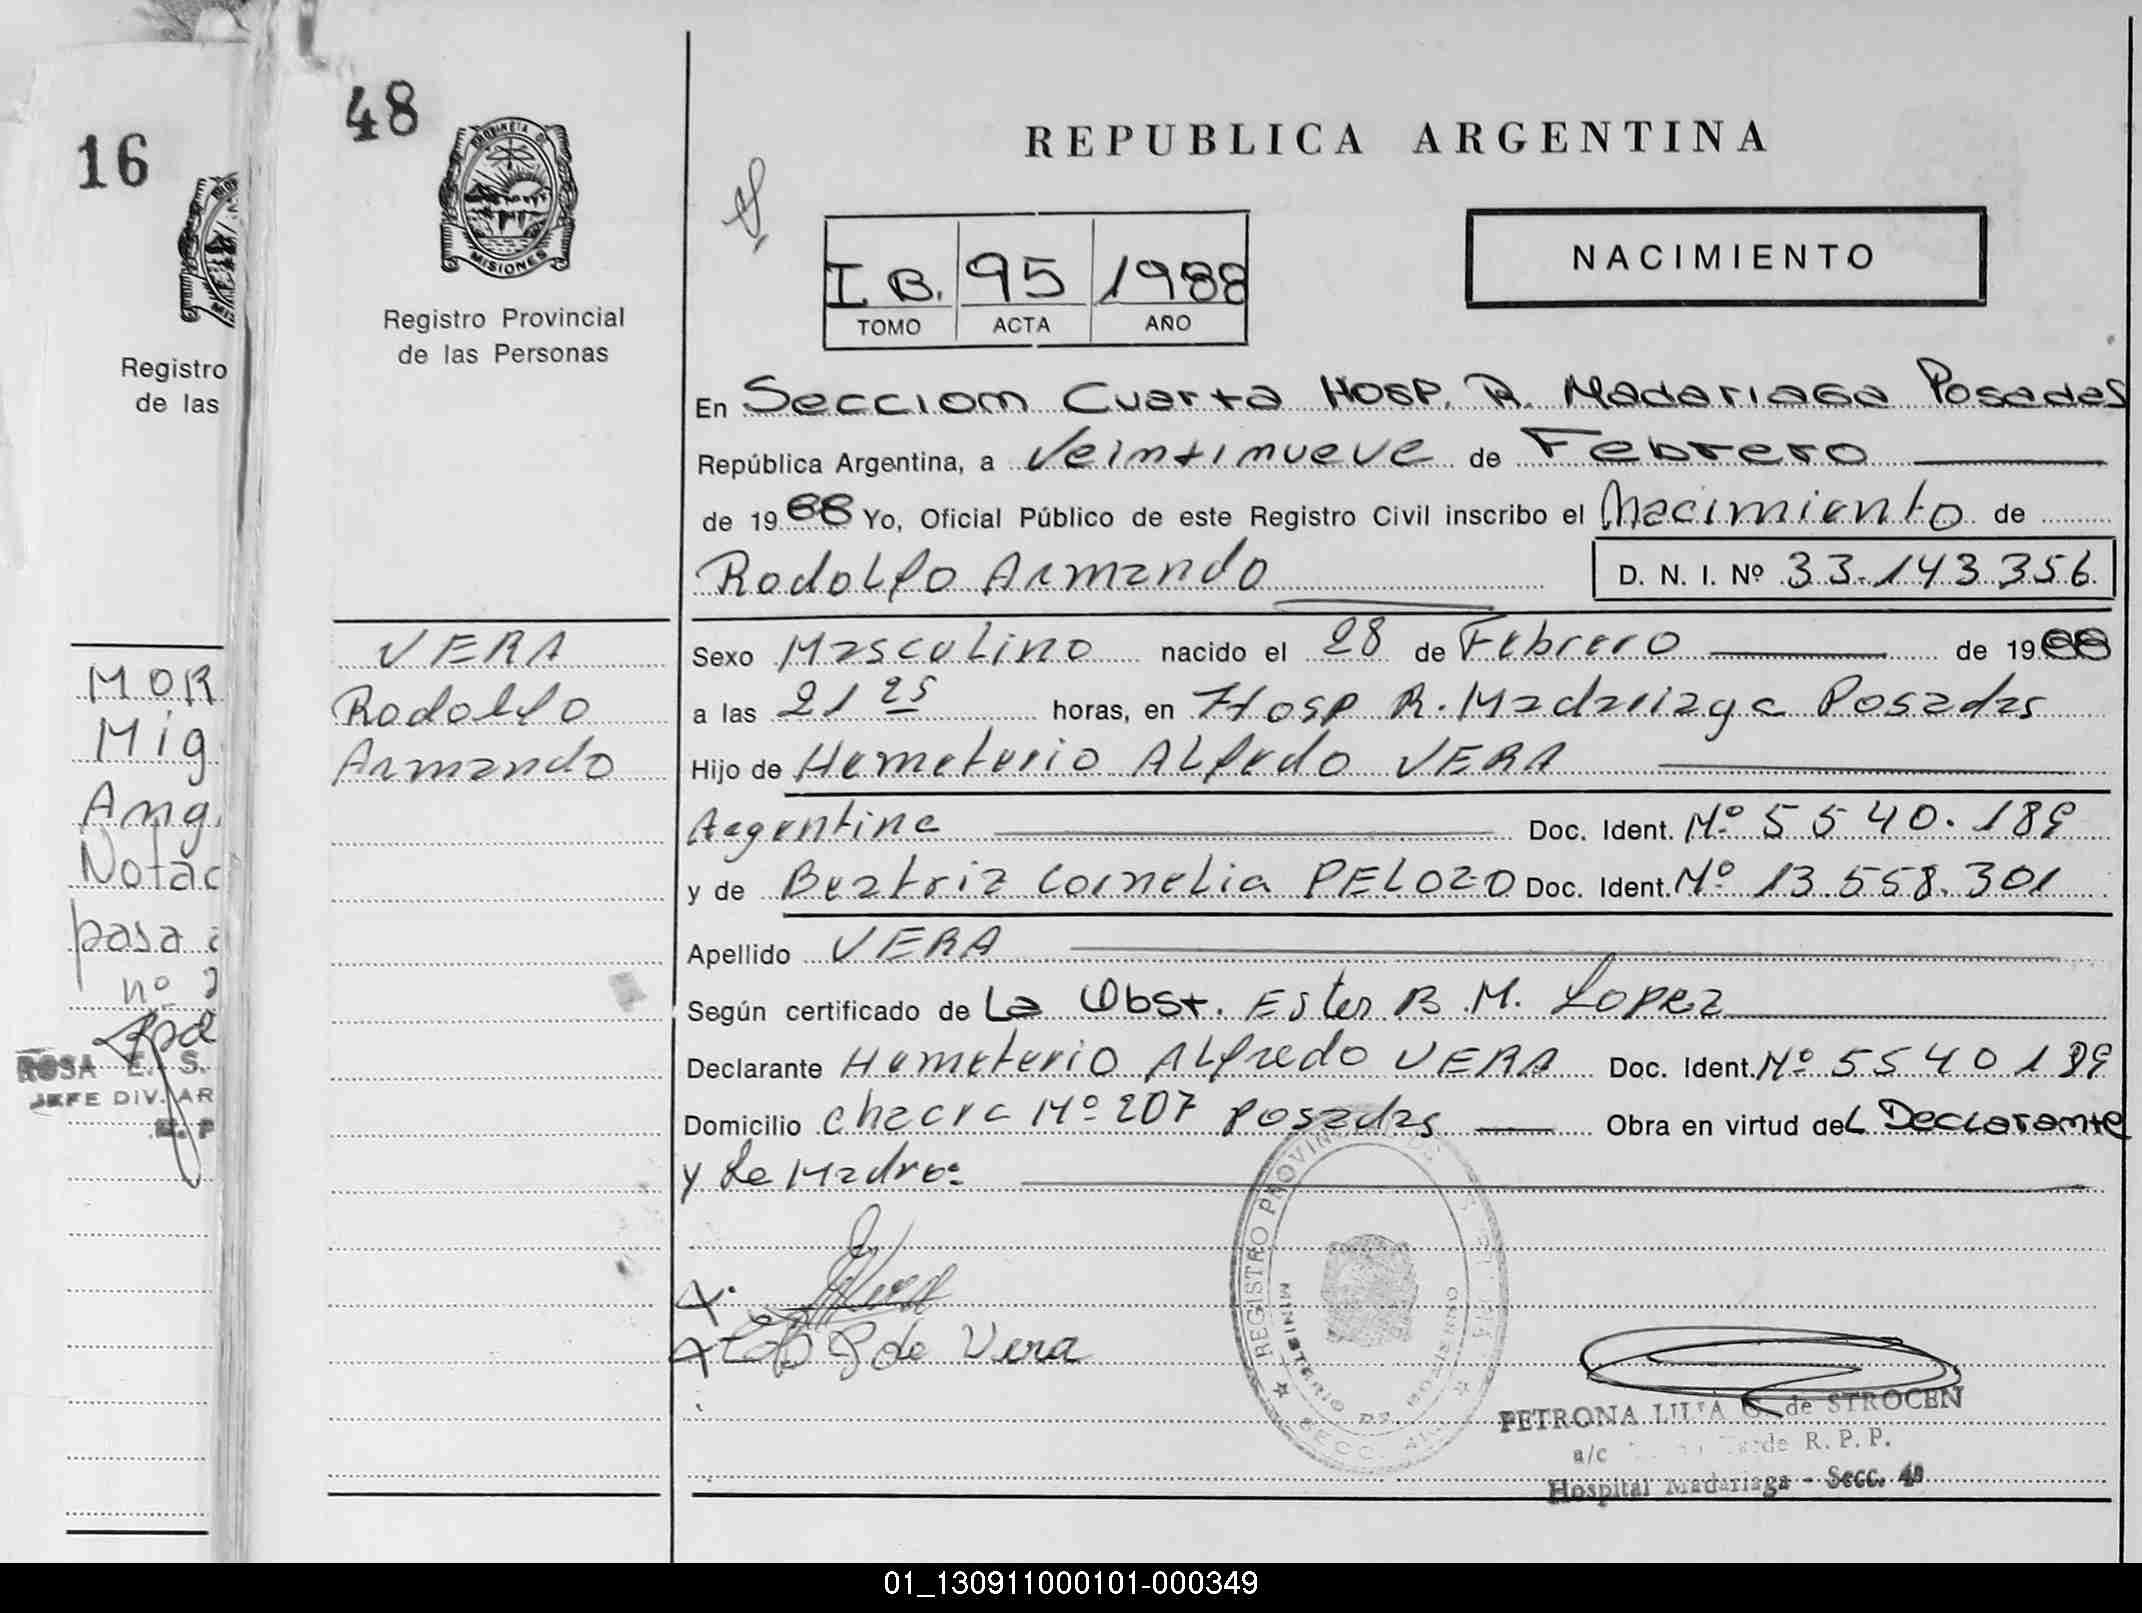 16
Registro
de las
MOR
Mig
Ang
Notac
pasa a
nº 2
ROSA E. S.
JEFE DIV. AR
48
PROVINCIA DE
MISIONES
Registro Provincial
de las Personas
VERA
Rodolfo
Armando
REPUBLICA ARGENTINA
I B. 95 1988
TOMO ACTA AÑO
NACIMIENTO
En Seccion Cuarta Hosp. R. Madariaga Posadas
República Argentina, a Veintinueve de Febrero
de 1988 Yo, Oficial Público de este Registro Civil inscribo el Nacimiento de
Rodolfo Armando D. N. I. Nº 33.143356
Sexo Masculino nacido el 28 de Febrero de 1988
a las 21 25 horas, en Hosp R. Madariaga Posadas
Hijo de Hemeterio Alfredo VERA
Argentina Doc. Ident. Nº 5540.189
y de Beatriz Cornelia PELOZO Doc. Ident. Nº 13.558.301
Apellido VERA
Según certificado de La Obst. Ester B. M. Lopez
Declarante Hemeterio Alfredo VERA Doc. Ident. Nº 5540189
Domicilio chacra Nº 207 Posadas Obra en virtud del Declarante
y La Madre
P de Vera
REGISTRO PROVINCIAL
MINISTERIO DE
SECC.
PETRONA de STROCEN
a/c R. P. P.
Hospital Madariaga - Secc. 4ª
01_130911000101-000349